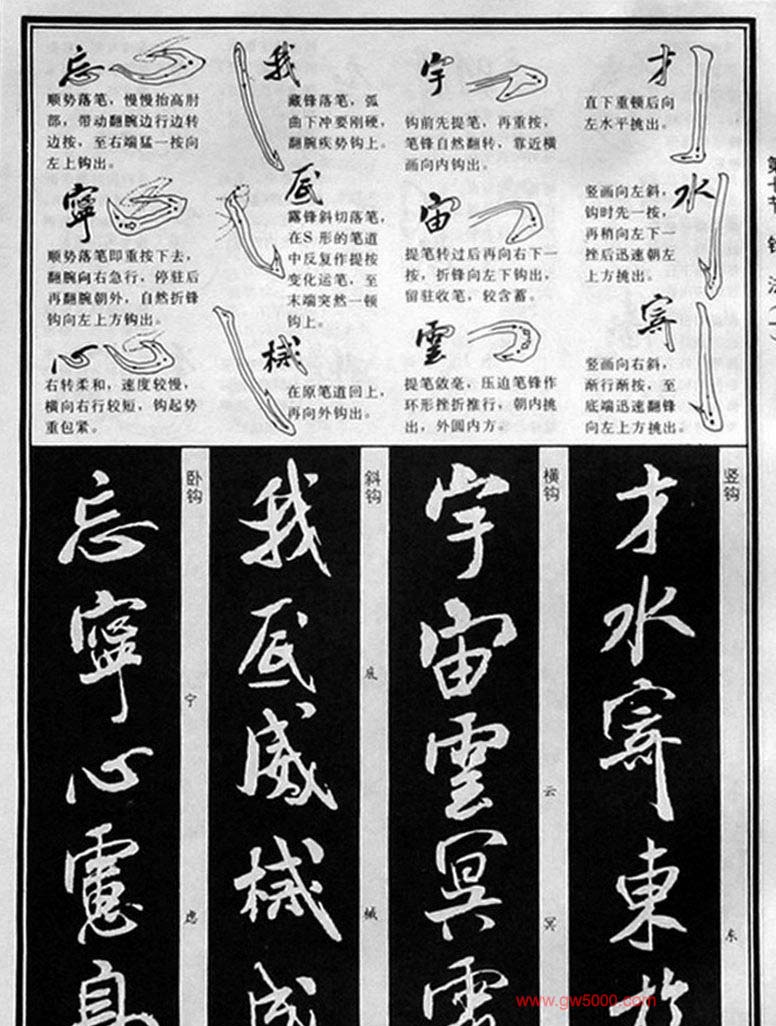 才
直下重顿后向
左水平挑出。
水
竖画向左斜，
钩时先一按，
再稍向左下一
挫后迅速朝左
上方挑出。
寄
竖画向右斜，
渐行渐按，至
底端迅速翻锋
向左上方挑出。
宇
钩前先提笔，再重按，
笔锋自然翻转，靠近横
画向内钩出。
宙
提笔转过后再向右下一
按，折锋向左下钩出，
留驻收笔，较含蓄。
雲
提笔敛毫，压迫笔锋作
环形挫折推行，朝内挑
出，外圆内方。
我
藏锋落笔，弧
曲下冲要刚硬，
翻腕疾势钩上。
底
露锋斜切落笔，
在S 形的笔道
中反复作提按
变化运笔，至
末端突然一顿
钩上。
械
在原笔道回上，
再向外钩出。
忘
顺势落笔，慢慢抬高肘
部，带动翻腕边行边转
边按，至右端猛一按向
左上钩出。
寧
顺势落笔即重按下去，
翻腕向右急行，停驻后
再翻腕朝外，自然折锋
钩向左上方钩出。
心
右转柔和，速度较慢，
横向右行较短，钩起势
重包紧。
竖钩
才水寄東於
东
横钩
宇宙雲冥
云 冥
斜钩
我底威械成
底 械
卧钩
忘寧心慮息
宁 虑
www.gw5000.com